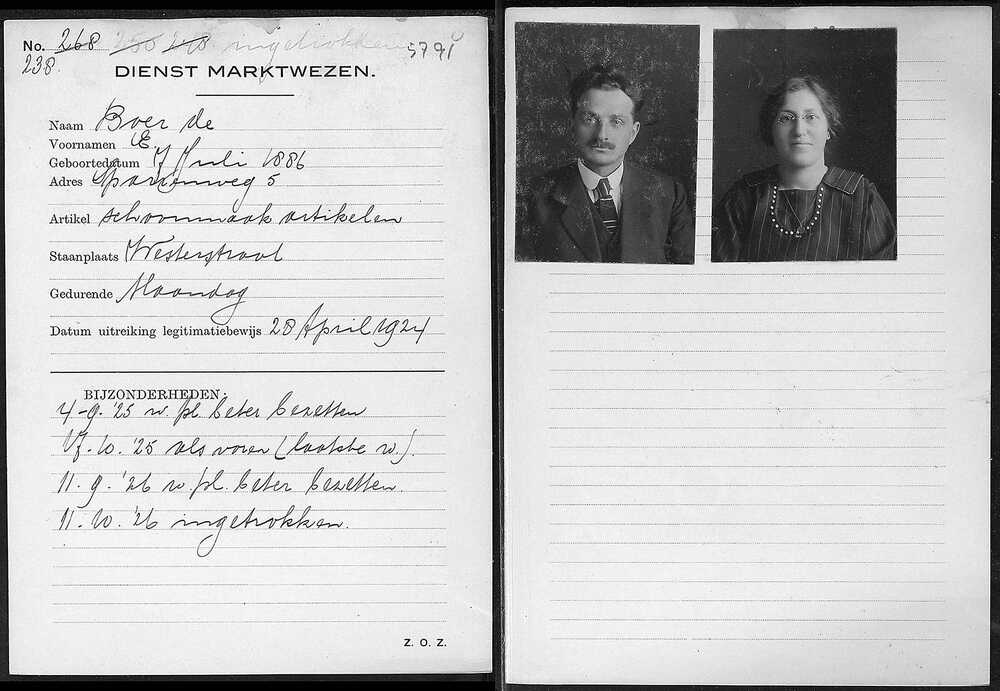 No. 268 250 240 ingetrokken 5791
238.
DIENST MARKTWEZEN.
Naam Boer de
Voornamen E.
Geboortedatum 7 Juli 1886
Adres Sparrenweg 5
Artikel schoonmaak artikelen
Staanplaats Westerstraat
Gedurende Maandag
Datum uitreiking legitimatiebewijs 28 April 1924
BIJZONDERHEDEN:
4-9.'25 w. pl. beter bezetten
10.'25 als voren (laatste w.).
11.9.'26 w. pl. beter bezetten.
11.10.'26 ingetrokken.
Z. O. Z.